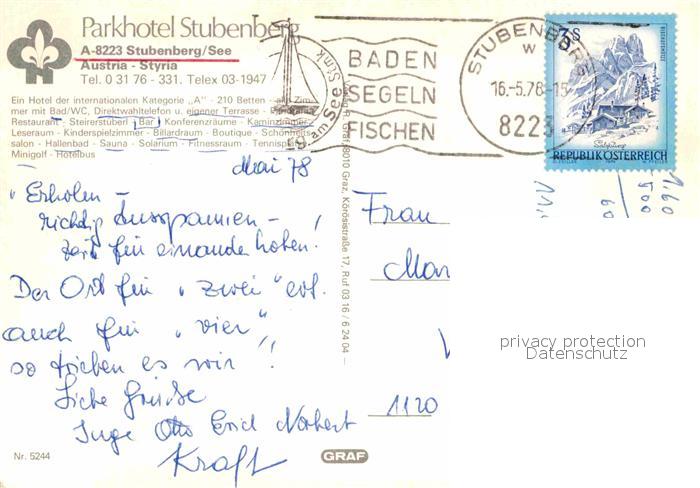 Parkhotel Stubenberg
A-8223 Stubenberg/See
Austria - Styria
Tel. 0 31 76 - 331. Telex 03-1947
Ein Hotel der internationalen Kategorie „A" · 210 Betten - alle Zim-
mer mit Bad/WC, Direktwahltelefon u. eigener Terrasse - Panorama
Restaurant - Steirerstüberl - Bar - Konferenzräume - Kaminzimmer
Leseraum - Kinderspielzimmer - Billardraum - Boutique - Schönheits
salon - Hallenbad - Sauna - Solarium - Fitnessraum - Tennisplätze
Minigolf - Hotelbus
BADEN
SEGELN
FISCHEN
am See
STUBENBERG
W
16.-5.78-15
8223
3S
REPUBLIK ÖSTERREICH
Mai 78
"Erholen -
richtig Ausspannen -
Zeit für einander haben!
Der Ort für "zwei" evt.
auch für "vier"
so trieben es wir!!
Liebe Grüsse
Inge Otto Erich Norbert
Kraft
Frau
Mar
1120
R. Graf, 8010 Graz, Körösistraße 17, Ruf 03 16 / 6 24 04 —
1.60
500
60
11.
privacy protection
Datenschutz
Nr. 5244
GRAF